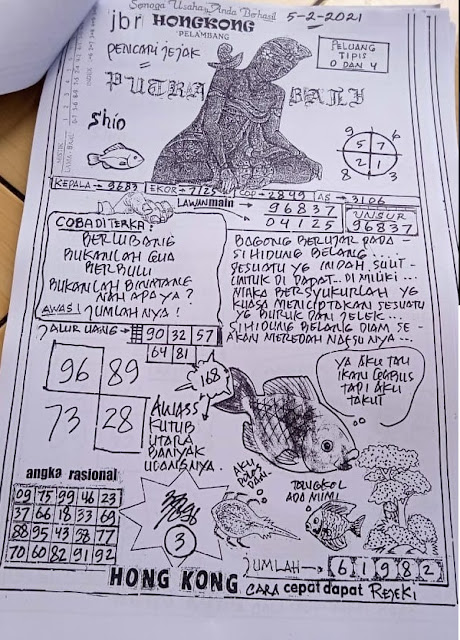 Semoga Usaha Anda Berhasil
jbr HONGKONG 5-2-2021
PELAMBANG
PENCARI JEJAK
=
PELUANG
TIPIS
0 DAN 4
PUTRA BALI
Shio
9 6
5 7
2 1
8 3
KEPALA → 9683 EKOR → 7125 COP → 2849 AS → 3106
LAWAN main → 96837
04125
UNSUR
96837
COBA DITERKA:
BERLUBANG
BUKANLAH GUA
BERBULU
BUKANLAH BINATANG
NAH APA YA?
AWAS! JUMLAHNYA!
BAGONG BERUJAR PADA -
SI HIDUNG BELANG....
SESUATU YG INDAH, SULIT -
UNTUK DI DAPAT.. DI MILIKI...
MAKA BERSYUKURLAH YG
KUASA MENCIPTAKAN SESUATU
YG BURUK DAN JELEK...
SI HIDUNG BELANG DIAM SE -
AKAN MEREDAH NAFSUNYA...
JALUR UANG → 90 32 57
64 81
96 89
73 28
168
AWASS
KUTUB
UTARA
BANYAK
UDANGNYA.
YA AKU TAU
IKAN
TAPI AKU
TAKUT
angka rasional
09 75 99 46 23
37 66 18 33 69
88 95 43 58 77
70 60 82 91 92
3
AKU
TONGKOL
ADA MIMI
JUMLAH → 6 1 9 8 2
HONG KONG CARA cepat dapat REJEKI